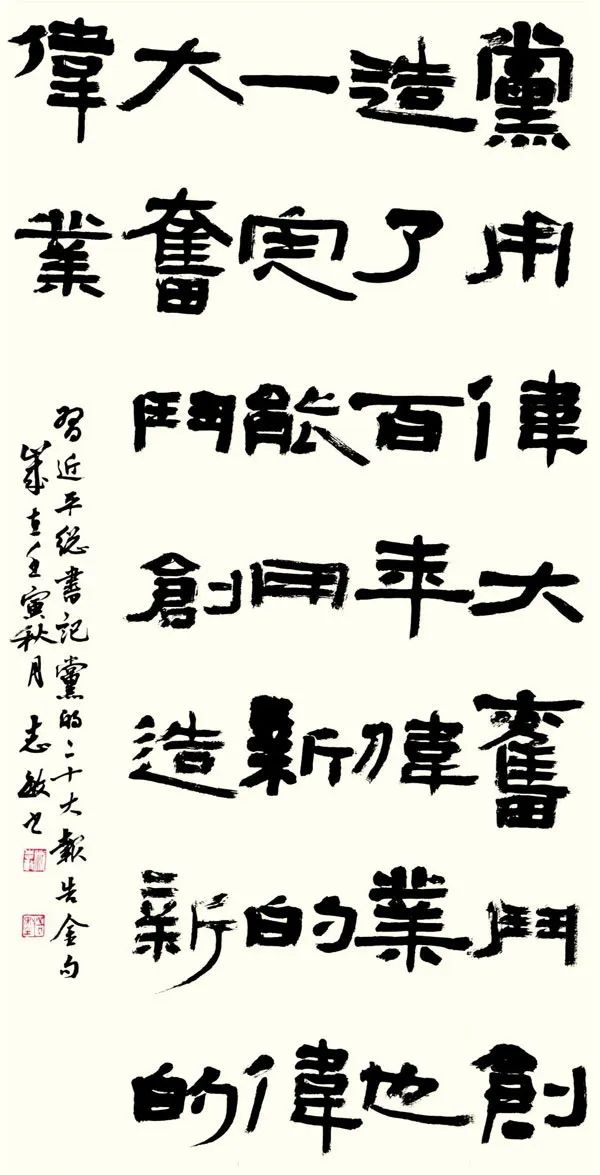 黨用偉大奮鬥創
造了百年偉業也
一定能用新的偉
大奮鬥創造新的
偉業
習近平總書記黨的二十大報告金句
歲在壬寅秋月 志敏書